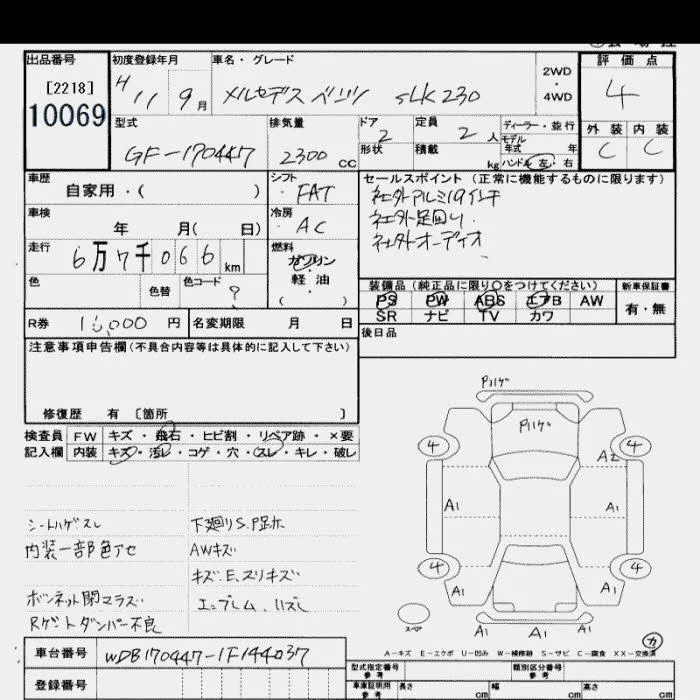 出品番号
[2218]
10069
初度登録年月
H 11 9月
車名・グレード
メルセデス ベンツ SLK 230
2WD
・
4WD
評価点
4
外装 内装
C C
型式
GF-170447
排気量
2300 cc
ドア 2
形状
定員 2 人
積載 kg
ディーラー・並行
モデル
年式 年
ハンドル 左・右
車歴
自家用・( )
シフト
FAT
車検
年 月( 日)
冷房
AC
走行
6万7千066km
燃料
ガソリン
軽・油
( )
色
色替
色コード ?
R券 16,000円
名変期限 月 日
セールスポイント(正常に機能するものに限ります)
社外アルミ19インチ
社外足回り
社外オーディオ
装備品(純正品に限り〇をつけてください)
PS PW ABS エアB AW
SR ナビ TV カワ
新車保証書
有・無
後日品
注意事項申告欄(不具合内容等は具体的に記入して下さい)
修復歴 有 〔箇所 〕
検査員
記入欄
FW キズ・飛石・ヒビ割・リペア跡・×要
内装 キズ・汚レ・コゲ・穴・スレ・キレ・破レ
シートハゲスレ
内装一部色アセ
ボンネット閉マラズ
Rゲートダンパー不良
下廻りS.P足ホ
AWキズ
キズ.E.スリキズ
エンブレム.ハズレ
Pハゲ
Pハゲ
4 4
A2
A1 A1
4 4
A1 A1
スペア
A1 A1 A1
カ
A-キズ E-エクボ U-凹み W-補修跡 S-サビ C-腐食 XX-交換済
車台番号
WDB170447-1F144037
登録番号
型式指定番号
参考
類別区分番号
参考
車庫証明用
参考
長さ cm
幅 cm
高さ cm